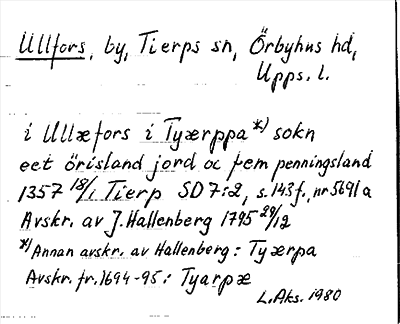 Ullfors, by, Tierps sn, Örbyhus hd,
Upps. l.
i Ullæfors i Tyærppa*) sokn
eet örisland jord oc fem penningsland
1357 18/1 Tierp SD 7:2, s. 143 f., nr 5691 a
Avskr. av J. Hallenberg 1795 29/12
*) Annan avskr. av Hallenberg: Tyærpa
Avskr. fr. 1694-95: Tyarpæ
L. Aks. 1980